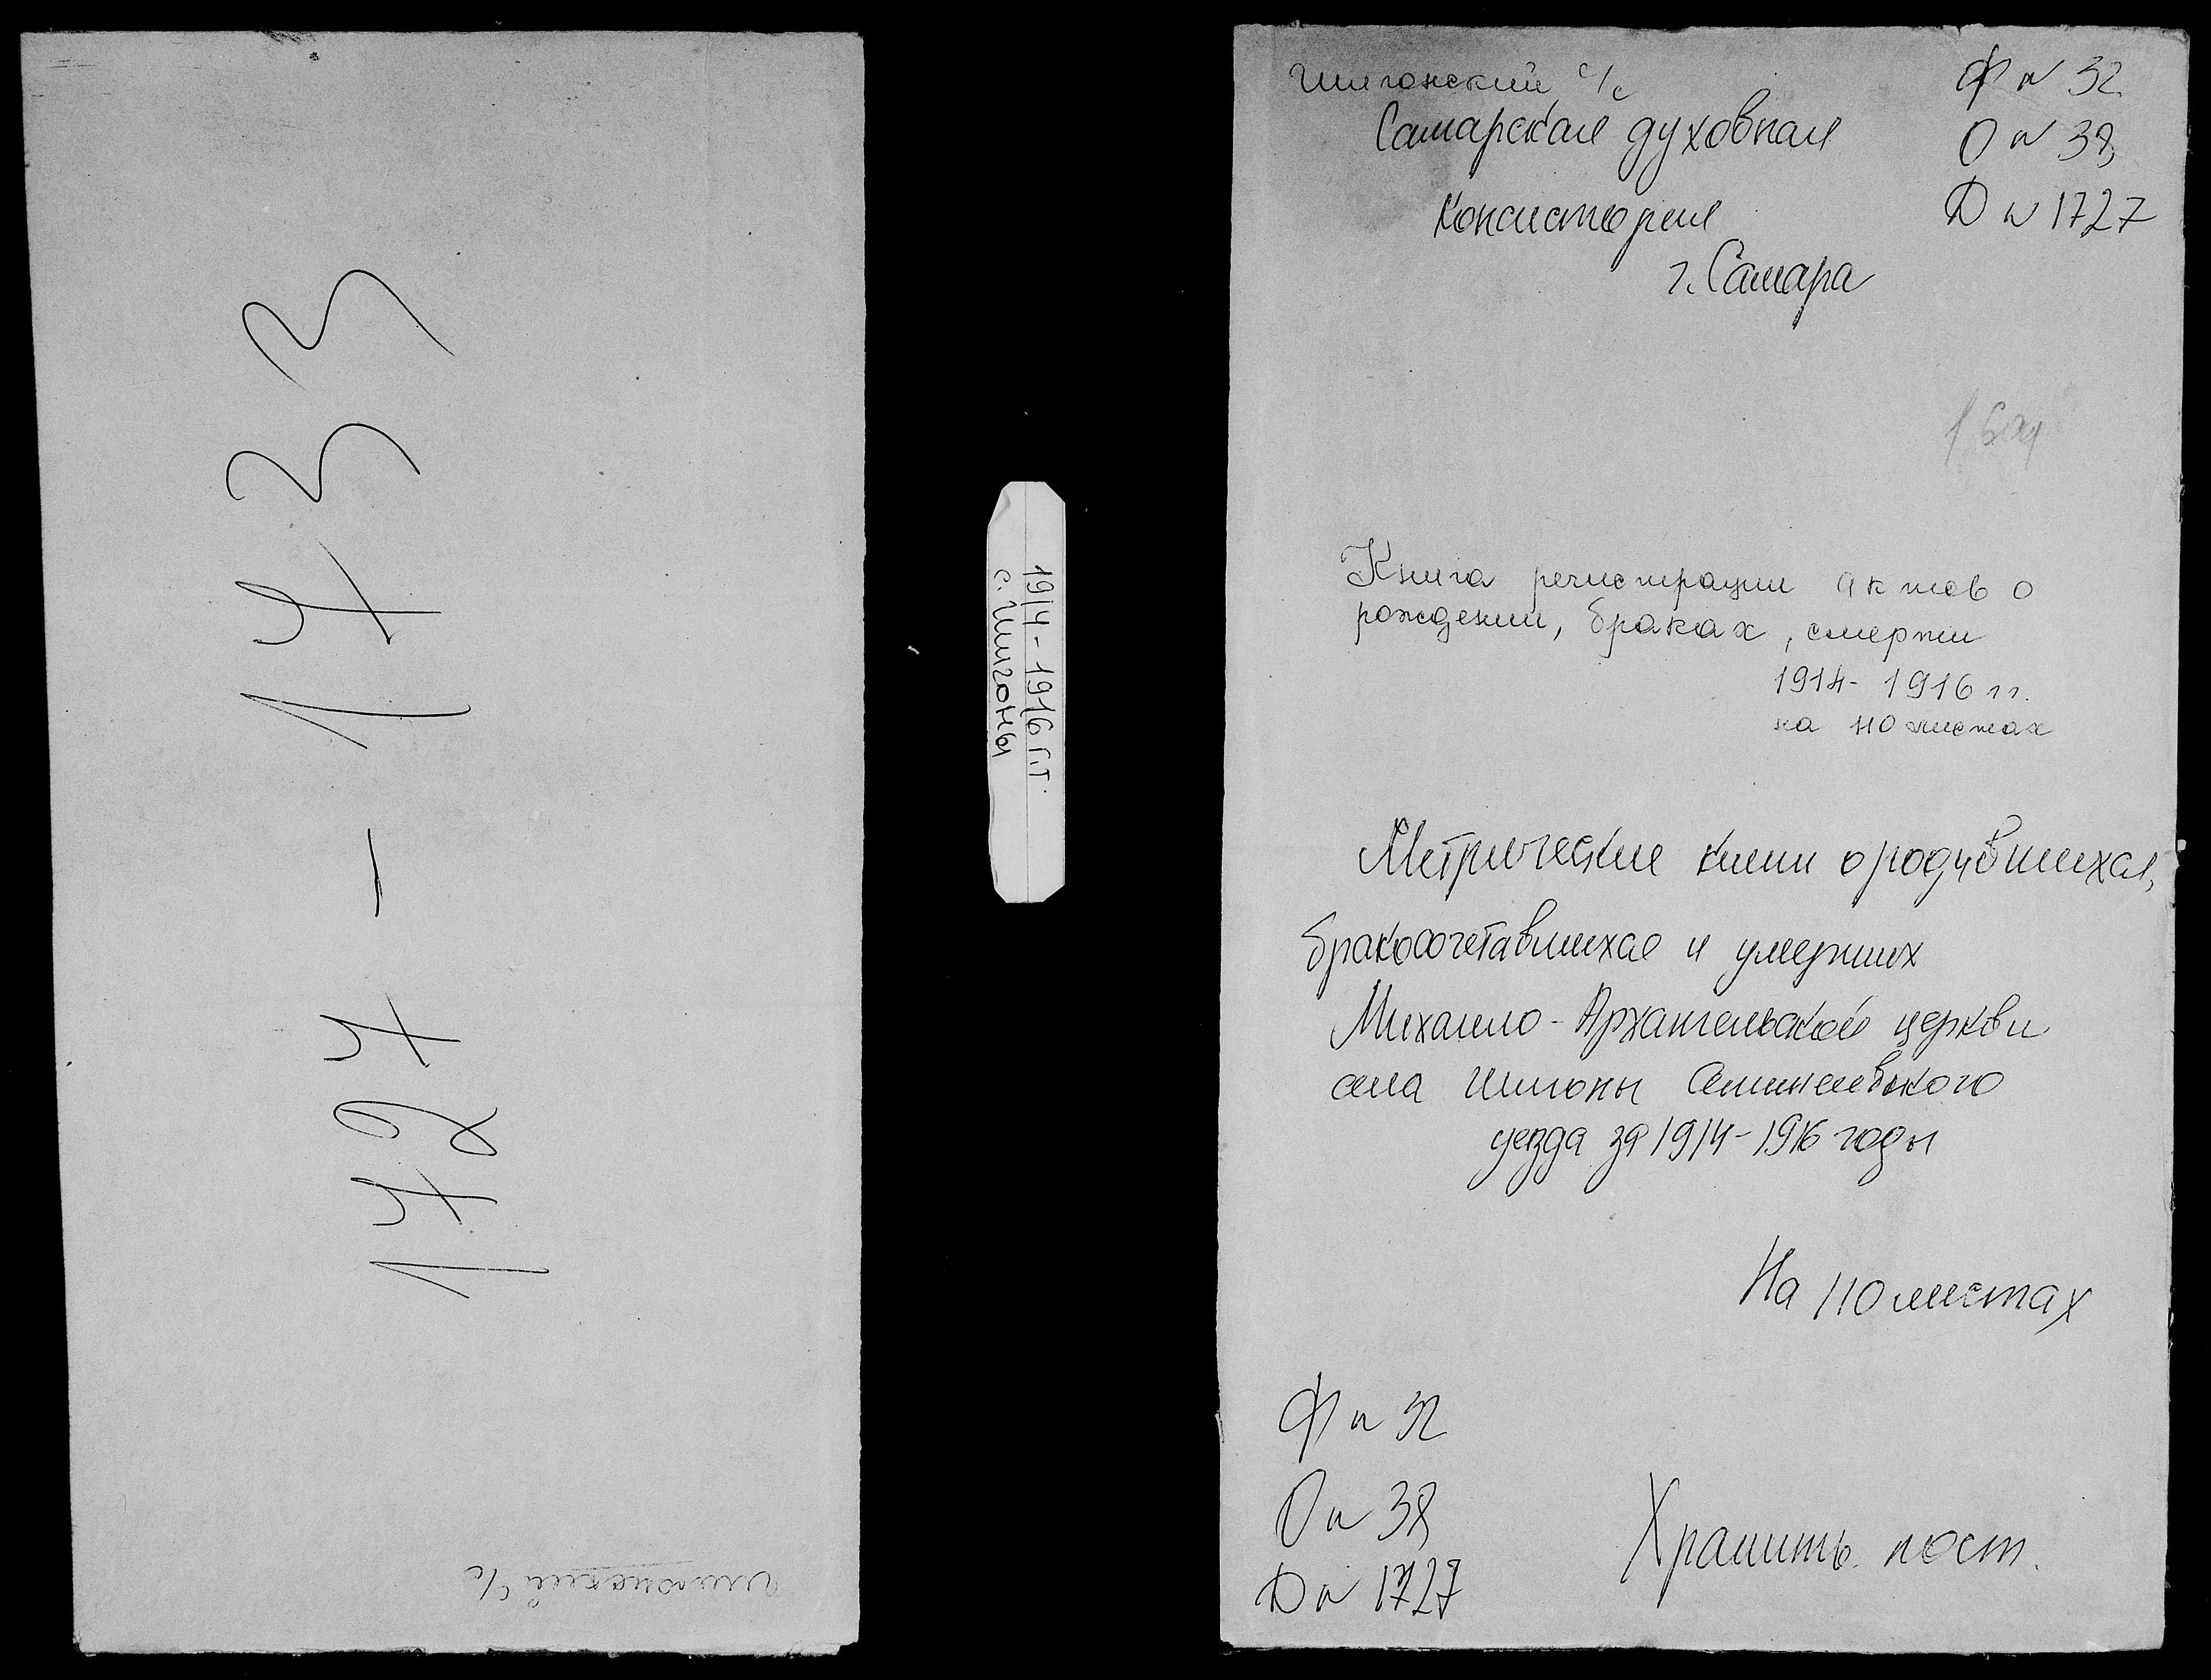 1727 - 1733
Шигонский с/с
1914-1916 г.г.
с. Шигоны
Шигонский с/с
Ф № 32
Самарская духовная
О № 38
консистория
Д № 1727
г. Самара
Книга регистрации актов о
рождении, браках, смерти
1914-1916 гг.
на 110 листах
Метрические книги о родившихся,
бракосочетавшихся и умерших
Михаило-Архангельской церкви
села Шигоны Сенгилеевского
уезда за 1914-1916 годы
На 110 листах
Ф № 32
О № 38
Д № 1727
Хранить пост.